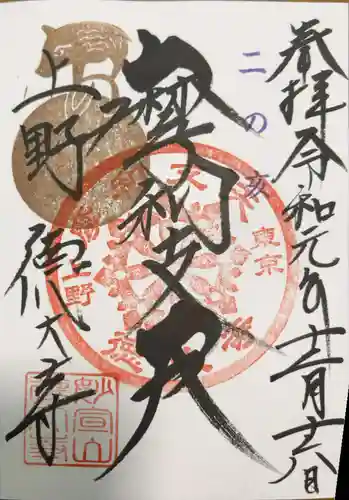 奉拝 令和元年十二月十六日
二の亥
摩利支天
上野
徳大寺
東京
上野
妙宣山
徳大寺